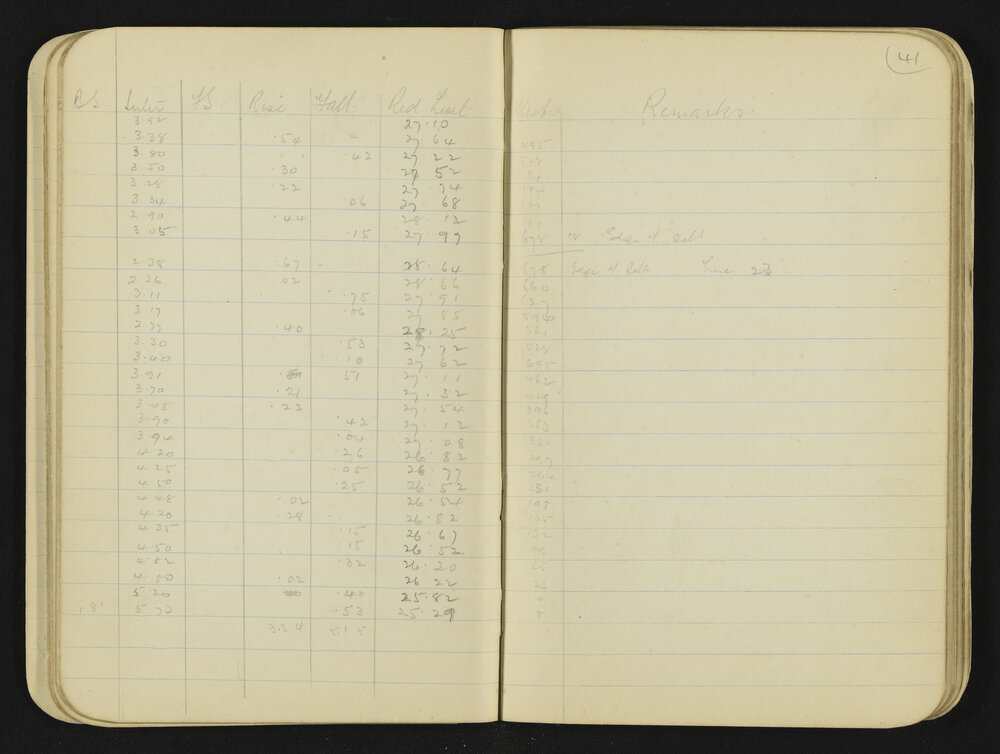 41
B.S. Inter F.S. Rise Fall. Red Level Dist Remarks.
3.52 27.10
3.38 .54 - 27.64 495
3 80 .42 27 22 528
3 50 .30 27 52 561
3.28 .22 27.74 594
3 34 .06 27 68
2.90 .44 28.12
3 05 .15 27.97 678 Edge of Salt
2.38 .67 28.64 678 Edge of Salt Line 23
2 36 .02 28 66 660
3.11 .75 27 91 627
3.17 .06 27.85 594
2 77 .40 28.25 561
3.30 .53 27.72 528
3.40 .10 27 62 495
3.91 51 27.11 462
3.70 .21 27.32 429
3.45 .22 27 54 396
3.90 .42 27.12 363
3 94 .04 27.08 330
4.20 .26 26.82 297
4 25 .05 26 77 264
4 50 .25 26.52 231
4.48 .02 26.54
4.20 .28 26.82 165
4.35 .15 26.67 132
4.50 .15 26.52
4.82 .32 26.20
4.80 .02 26 22
5 20 .40 25.82 0
5 73 .53 25.29
3.34 5.15